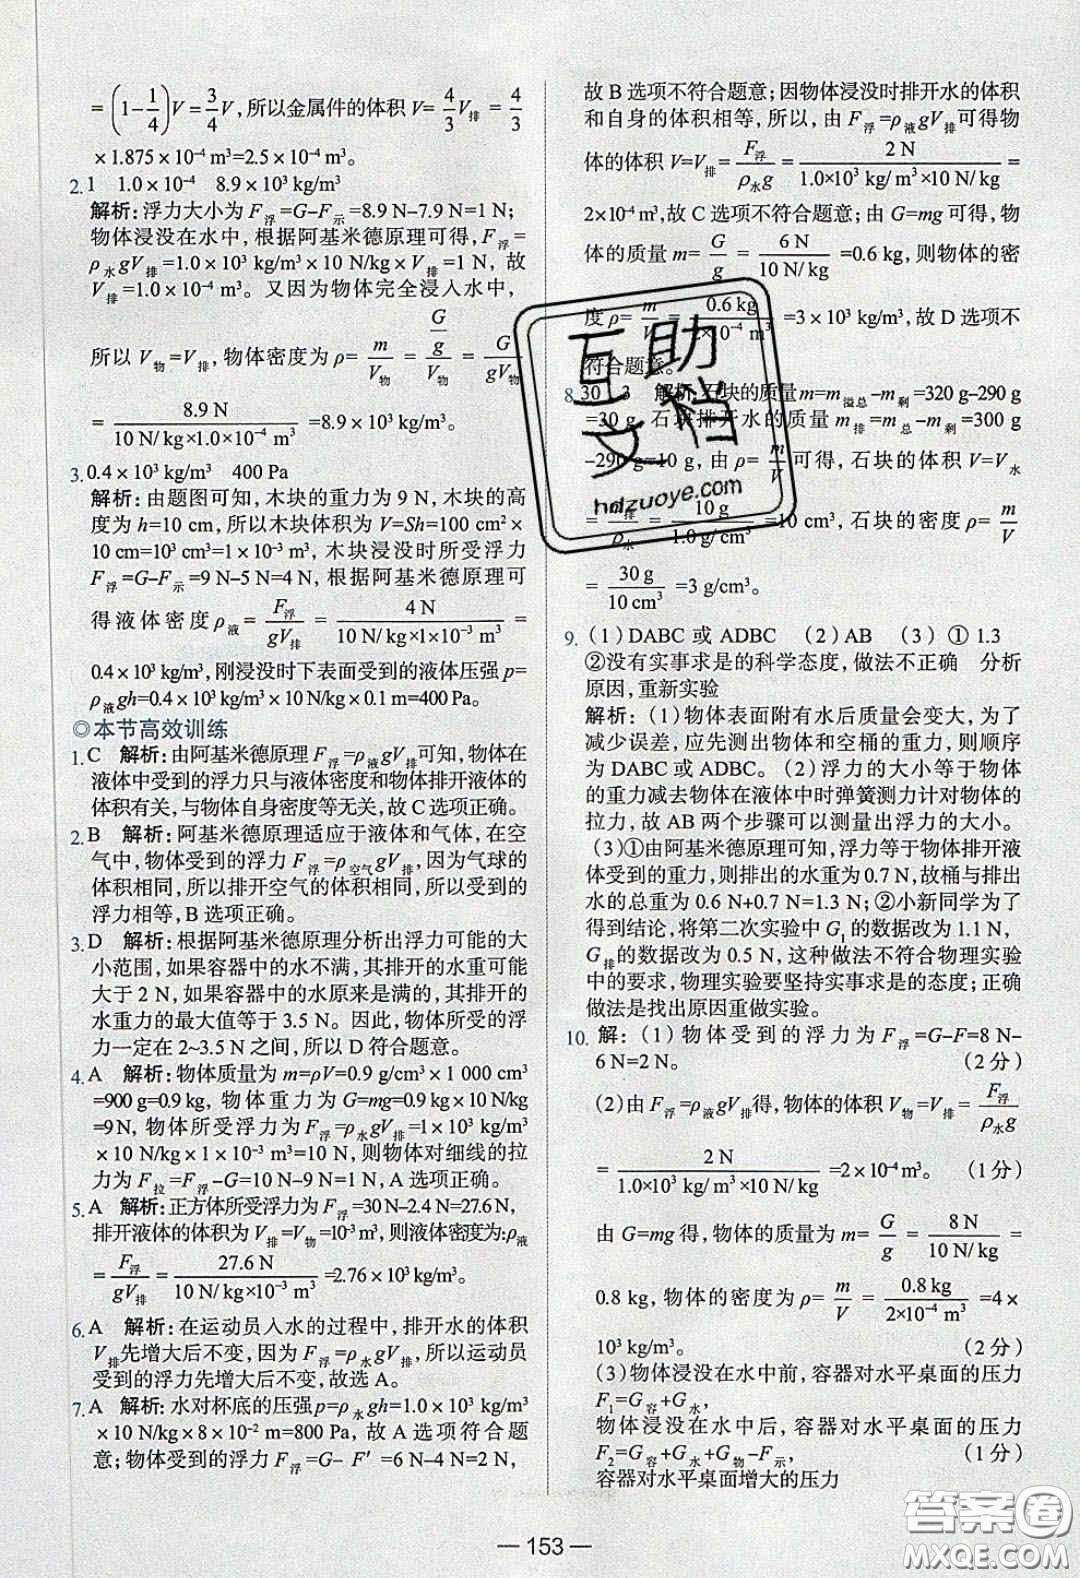 =(1-1/4)V=3/4V,所以金属件的体积 V=4/3V排=4/3
×1.875×10⁻⁴ m³=2.5×10⁻⁴ m³。
2. 1  1.0×10⁻⁴  8.9×10³ kg/m³
解析:浮力大小为 F浮=G-F示=8.9 N-7.9 N=1 N;
物体浸没在水中,根据阿基米德原理可得,F浮=
ρ水gV排=1.0×10³ kg/m³×10 N/kg×V排=1 N,故
V排=1.0×10⁻⁴ m³。又因为物体完全浸入水中,
所以 V物=V排,物体密度为 ρ=m/V物=(G/g)/V物=G/gV物
=8.9 N/(10 N/kg×1.0×10⁻⁴ m³)=8.9×10³ kg/m³。
3. 0.4×10³ kg/m³  400 Pa
解析:由题图可知,木块的重力为 9 N,木块的高
度为 h=10 cm,所以木块体积为 V=Sh=100 cm²×
10 cm=10³ cm³=1×10⁻³ m³,木块浸没时所受浮力
F浮=G-F示=9 N-5 N=4 N,根据阿基米德原理可
得液体密度 ρ液=F浮/gV排=4 N/(10 N/kg×1×10⁻³ m³)=
0.4×10³ kg/m³,刚浸没时下表面受到的液体压强 p=
ρ液gh=0.4×10³ kg/m³×10 N/kg×0.1 m=400 Pa。
◎本节高效训练
1. C 解析:由阿基米德原理 F浮=ρ液gV排可知,物体在
液体中受到的浮力只与液体密度和物体排开液体的
体积有关,与物体自身密度等无关,故 C 选项正确。
2. B 解析:阿基米德原理适应于液体和气体,在空
气中,物体受到的浮力 F浮=ρ空气gV排,因为气球的
体积相同,所以排开空气的体积相同,所以受到的
浮力相等,B 选项正确。
3. D 解析:根据阿基米德原理分析出浮力可能的大
小范围,如果容器中的水不满,其排开的水重可能
大于 2 N,如果容器中的水原来是满的,其排开的
水重力的最大值等于 3.5 N。因此,物体所受的浮
力一定在 2~3.5 N 之间,所以 D 符合题意。
4. A 解析:物体质量为 m=ρV=0.9 g/cm³×1 000 cm³
=900 g=0.9 kg,物体重力为 G=mg=0.9 kg×10 N/kg
=9 N,物体所受浮力为 F浮=ρ水gV排=1×10³ kg/m³
×10 N/kg×1×10⁻³ m³=10 N,则物体对细线的拉
力为 F拉=F浮-G=10 N-9 N=1 N,A 选项正确。
5. A 解析:正方体所受浮力为 F浮=30 N-2.4 N=27.6 N,
排开液体的体积为 V排=V物=10⁻³ m³,则液体密度为:ρ液
=F浮/gV排=27.6 N/(10 N/kg×10⁻³ m³)=2.76×10³ kg/m³。
6. A 解析:在运动员入水的过程中,排开水的体积
V排先增大后不变,因为 F浮=ρ水gV排,所以运动员
受到的浮力先增大后不变,故选 A。
7. A 解析:水对杯底的压强 p=ρ水gh=1.0×10³ kg/m³
×10 N/kg×8×10⁻² m=800 Pa,故 A 选项符合题
意;物体受到的浮力 F浮=G- F′=6 N-4 N=2 N,
故 B 选项不符合题意;因物体浸没时排开水的体积
和自身的体积相等,所以,由 F浮=ρ液gV排可得物
体的体积 V=V排=F浮/ρ水g=2 N/(1.0×10³ kg/m³×10 N/kg)=
2×10⁻⁴ m³,故 C 选项不符合题意;由 G=mg 可得,物
体的质量 m=G/g=6 N/(10 N/kg)=0.6 kg,则物体的密
度 ρ=m/V=0.6 kg/(2×10⁻⁴ m³)=3×10³ kg/m³,故 D 选项不
符合题意。
8. 30  3 解析:石块的质量 m=m溢总-m剩=320 g-290 g
=30 g,石块排开水的质量 m排=m总-m剩=300 g
-290 g=10 g,由 ρ=m/V 可得,石块的体积 V=V水
=m排/ρ水=10 g/(1.0 g/cm³)=10 cm³,石块的密度 ρ=m/V
=30 g/10 cm³=3 g/cm³。
9. (1)DABC 或 ADBC (2)AB (3)①1.3
②没有实事求是的科学态度,做法不正确 分析
原因,重新实验
解析:(1)物体表面附有水后质量会变大,为了
减少误差,应先测出物体和空桶的重力,则顺序
为 DABC 或 ADBC。(2)浮力的大小等于物体
的重力减去物体在液体中时弹簧测力计对物体的
拉力,故 AB 两个步骤可以测量出浮力的大小。
(3)①由阿基米德原理可知,浮力等于物体排开液
体受到的重力,则排出的水重为 0.7 N,故桶与排出
水的总重为 0.6 N+0.7 N=1.3 N;②小新同学为了
得到结论,将第二次实验中 G₁的数据改为 1.1 N,
G排的数据改为 0.5 N,这种做法不符合物理实验
中的要求,物理实验要坚持实事求是的态度;正确
做法是找出原因重做实验。
10. 解:(1)物体受到的浮力为 F浮=G-F=8 N-
6 N=2 N。 (2 分)
(2)由 F浮=ρ液gV排得,物体的体积 V物=V排=F浮/ρ水g
=2 N/(1.0×10³ kg/m³×10 N/kg)=2×10⁻⁴ m³。 (1 分)
由 G=mg 得,物体的质量为 m=G/g=8 N/(10 N/kg)=
0.8 kg,物体的密度为 ρ=m/V=0.8 kg/(2×10⁻⁴ m³)=4×
10³ kg/m³。 (2 分)
(3)物体浸没在水中前,容器对水平桌面的压力
F₁=G容+G水,
物体浸没在水中后,容器对水平桌面的压力
F₂=G容+G水+G物-F示, (1 分)
容器对水平桌面增大的压力
— 153 —
互助
文档
hdzuoye.com
答案圈
MXQE.COM